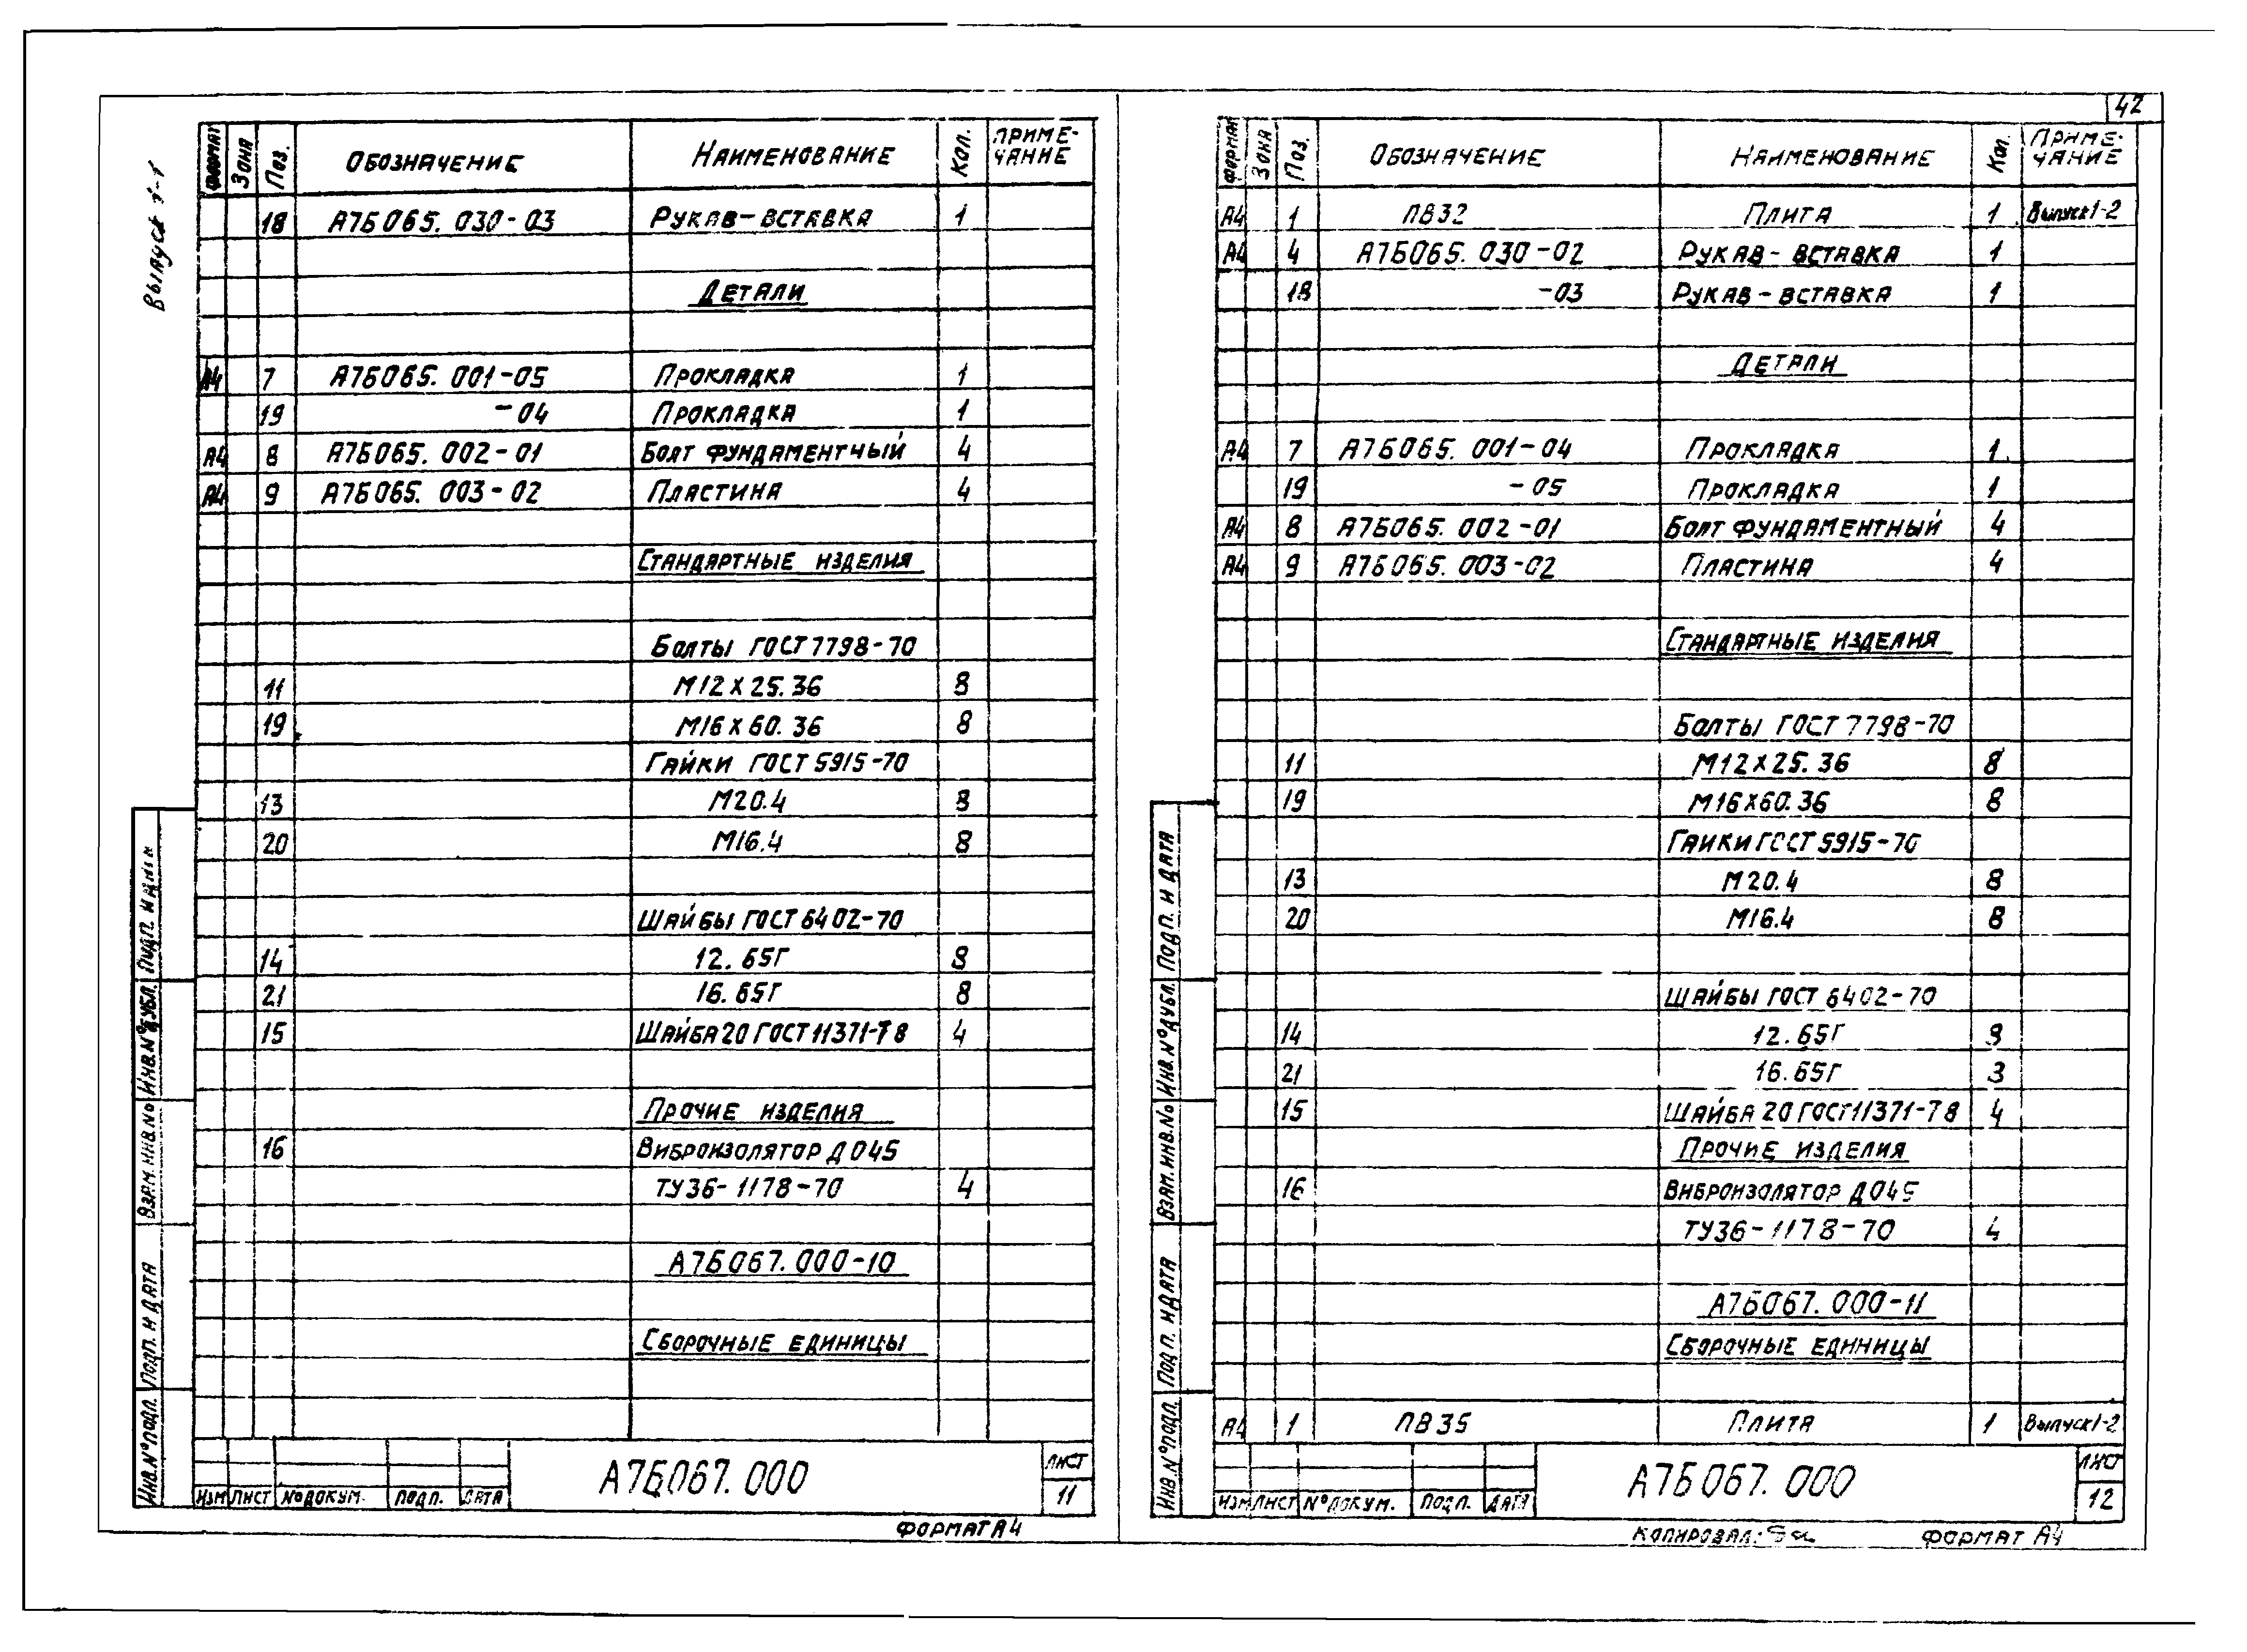 42
Выпуск 1-1
Формат Зона Поз. Обозначение Наименование Кол. Примечание
18 А7Б065.030-03 Рукав-вставка 1
Детали
А4 7 А7Б065.001-05 Прокладка 1
19 -04 Прокладка 1
А4 8 А7Б065.002-01 Болт фундаментный 4
А4 9 А7Б065.003-02 Пластина 4
Стандартные изделия
Болты ГОСТ 7798-70
11 М12х25.36 8
19 М16х60.36 8
Гайки ГОСТ 5915-70
13 М20.4 8
20 М16.4 8
Шайбы ГОСТ 6402-70
14 12.65Г 8
21 16.65Г 8
15 Шайба 20 ГОСТ 11371-78 4
Прочие изделия
16 Виброизолятор Д045
ТУ36-1178-70 4
А7Б067.000-10
Сборочные единицы
Инв.№ подл. Подп. и дата Взам.инв.№ Инв.№ дубл. Подп. и
Изм Лист № докум. Подп. Дата
А7Б067.000
Лист
11
Формат А4
Формат Зона Поз. Обозначение Наименование Кол. Примечание
А4 1 ПВ32 Плита 1 Выпуск 1-2
А4 4 А7Б065.030-02 Рукав-вставка 1
18 -03 Рукав-вставка 1
Детали
А4 7 А7Б065.001-04 Прокладка 1
19 -05 Прокладка 1
А4 8 А7Б065.002-01 Болт фундаментный 4
А4 9 А7Б065.003-02 Пластина 4
Стандартные изделия
Болты ГОСТ 7798-70
11 М12х25.36 8
19 М16х60.36 8
Гайки ГОСТ 5915-70
13 М20.4 8
20 М16.4 8
Шайбы ГОСТ 6402-70
14 12.65Г 8
21 16.65Г 8
15 Шайба 20 ГОСТ 11371-78 4
Прочие изделия
16 Виброизолятор Д045
ТУ36-1178-70 4
А7Б067.000-11
Сборочные единицы
А4 1 ПВ35 Плита 1 Выпуск 1-2
Инв.№ подл. Подп. и дата Взам.инв.№ Инв.№ дубл. Подп. и дата
Изм Лист № докум. Подп. Дата
А7Б067.000
Лист
12
Копировал: Формат А4